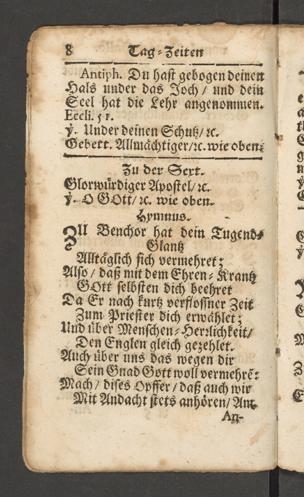 8 Tag-Zeiten
Antiph. Du hast gebogen deinen
Hals under das Joch / und dein
Seel hat die Lehr angenommen.
Eccli. 51.
℣. Under deinen Schutz / ꝛc.
Gebett. Allmächtiger / ꝛc. wie oben.
Zu der Sext.
Glorwürdiger Apostel / ꝛc.
℣. O GOtt / ꝛc. wie oben.
Hymnus.
ZU Benchor hat dein Tugend-
Glantz
Alltäglich sich vermehret;
Also / daß mit dem Ehren-Krantz
GOtt selbsten dich beehret
Da Er nach kurtz verflossner Zeit
Zum Priester dich erwählet;
Und über Menschen-Herrlichkeit /
Den Englen gleich gezehlet.
Auch über uns das wegen dir
Sein Gnad Gott woll vermehrē:
Mach / dises Opffer / daß auch wir
Mit Andacht stets anhören / Am.
An-